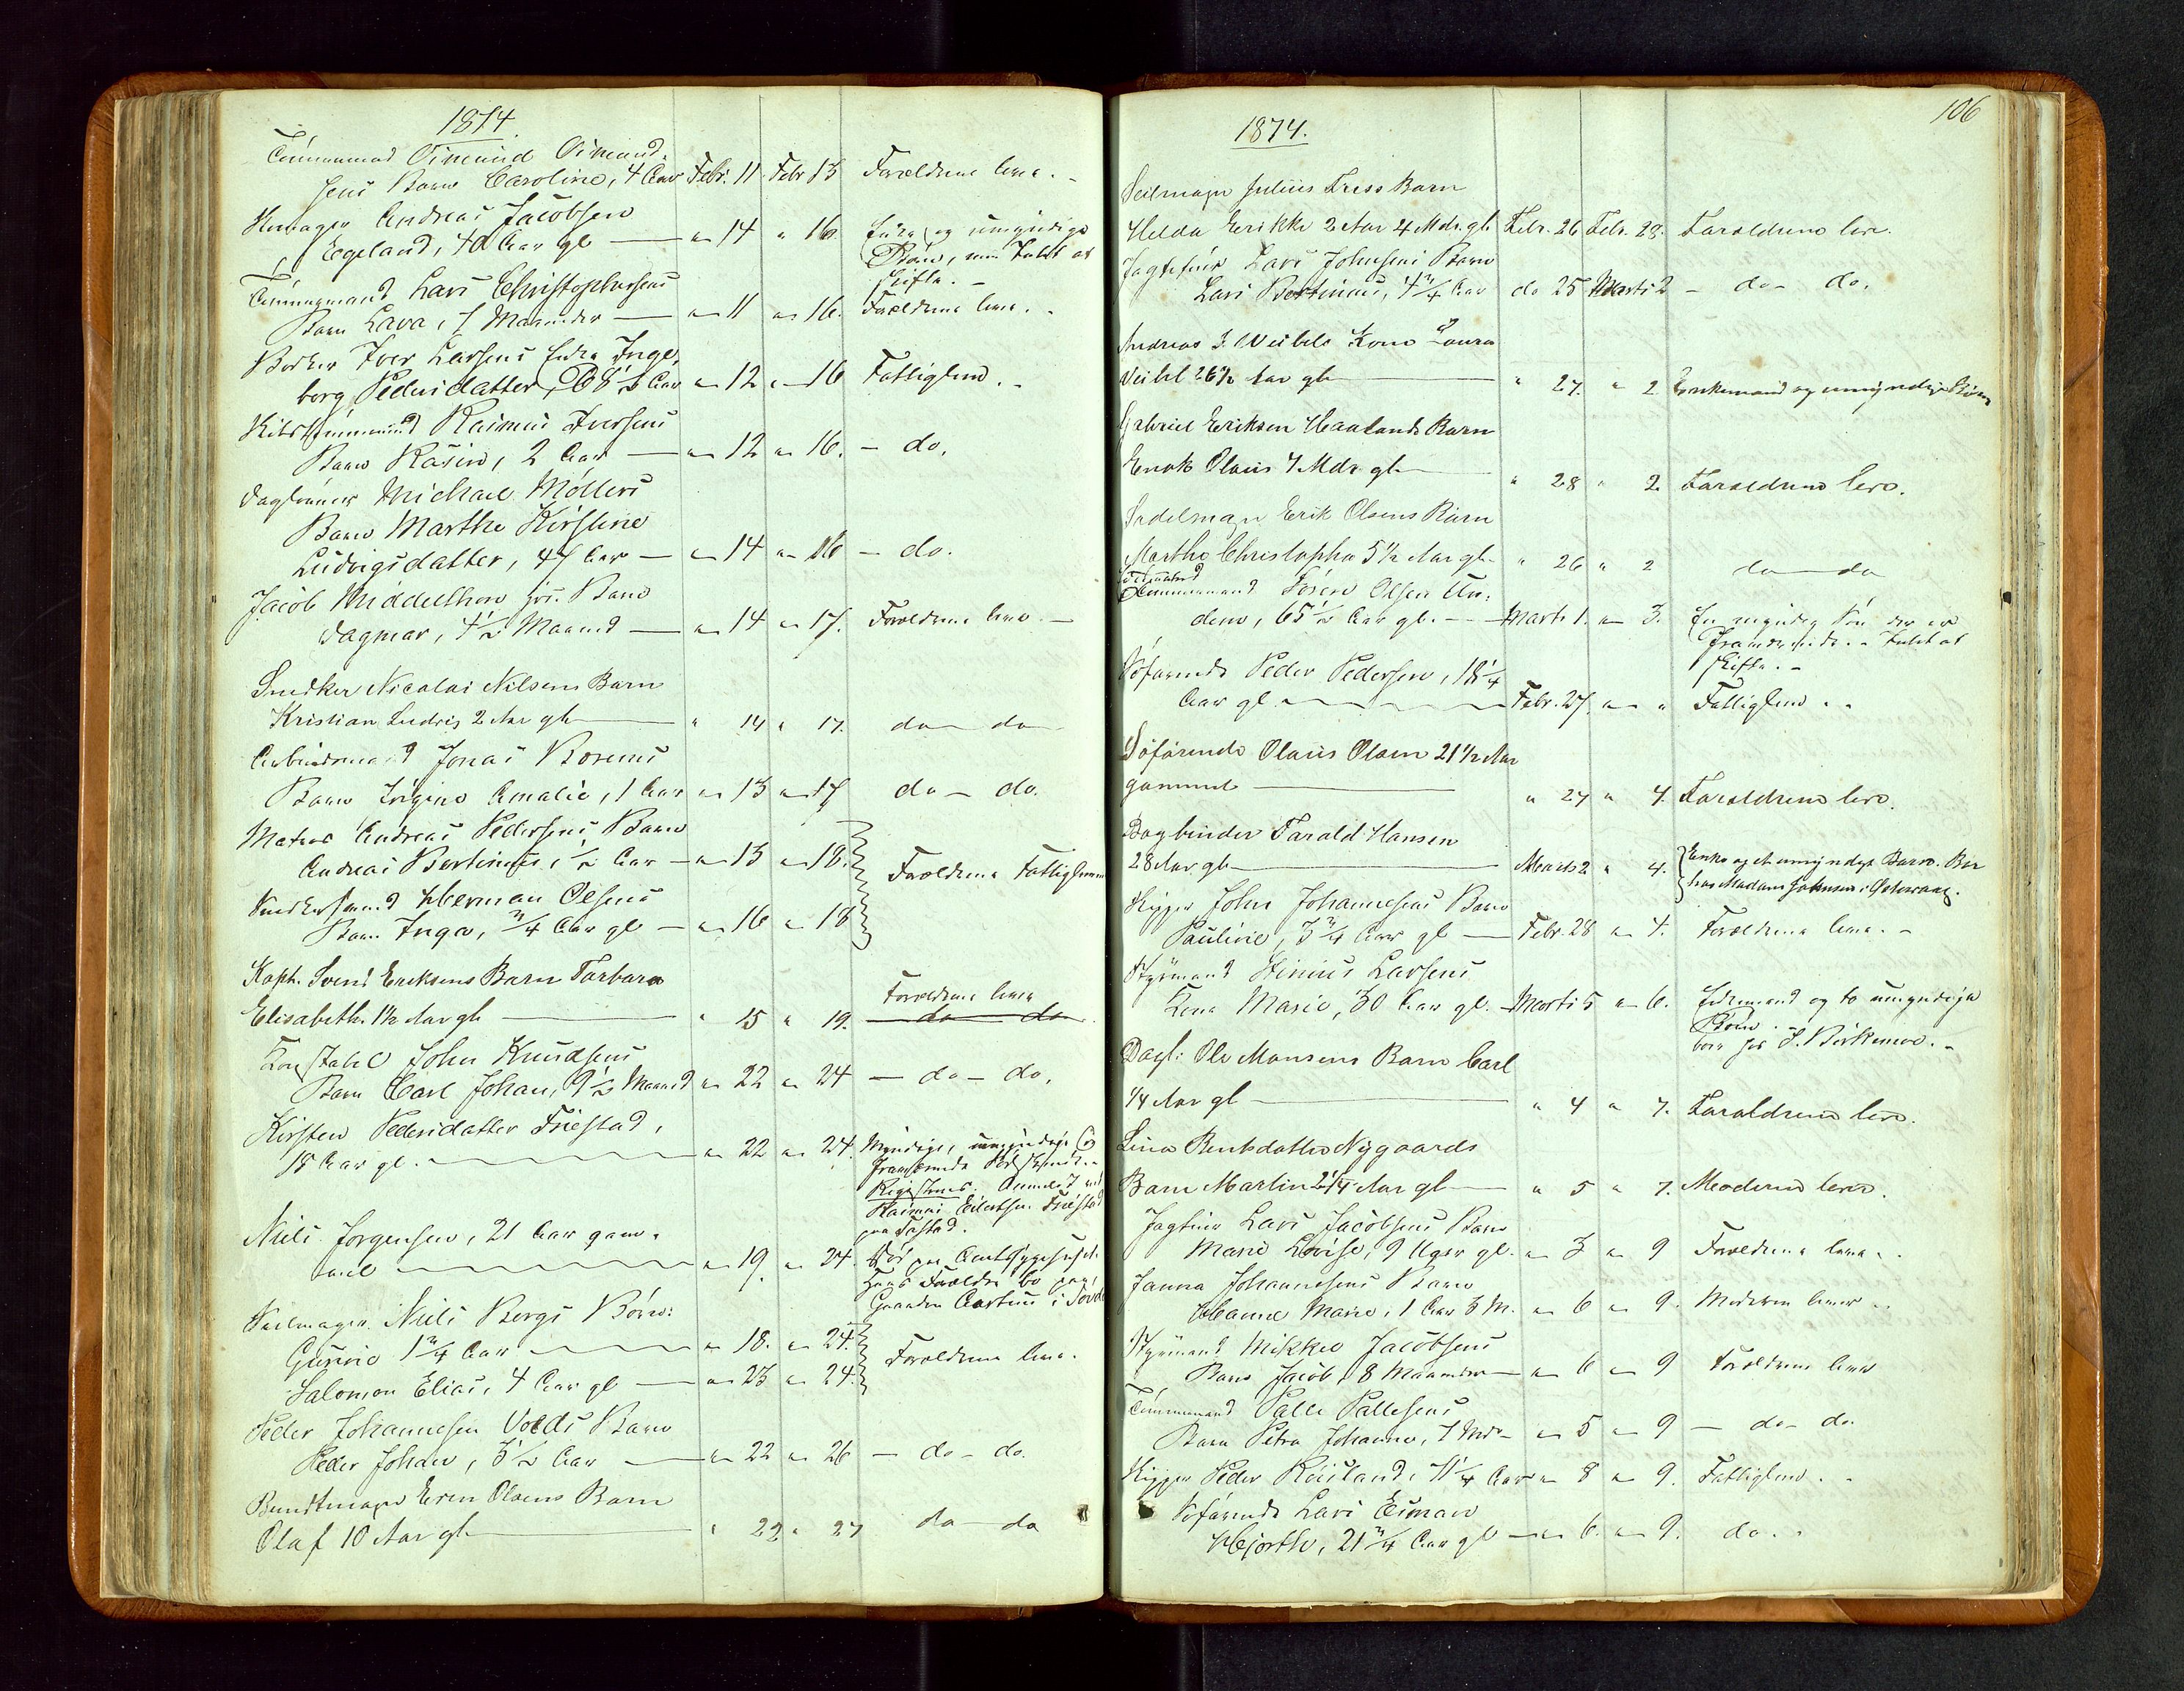 1874
Tømmermand Osmund Osmund-
sens Barn Caroline, 4 Aar Febr. 11. Febr 13 Forældrene leve. -
Andreas Jacobsen
Egeland, 40 Aar gl — " 14 " 16. Enke og umyndige
Børn, intet at
skifte. -
Tømmermand Lars Christophersens
Barn Lava, 7 Maaneder — " 11 " 16. Forældrene leve. -
Bødker Iver Larsens Enke Inge-
borg Pedersdatter, 68 1/2 Aar " 12 " 16 Fattiglem. -
Rasmus Iversens
Barn Rasine, 2 Aar — " 12 " 16. - do.
Daglønner Michael Møllers
Barn Marthe Kirstine
Ludvigsdatter, 47 Aar — " 14 " 16 - do.
Jacob Middelthon jrs. Barn
Dagmar, 4 1/2 Maaned — " 14 " 17. Forældrene leve. -
Snedker Nicolai Nilsens Barn
Kristian Ludvig 2 Aar gl — " 14 " 17. do do
Arbeidsmand Jonas Rosenes
Barn Amalie, 1 Aar " 13 " 17 do - do.
Matros Andreas Pedersens Barn
Andreas Bertinius, 1/2 Aar — " 13 " 18. Forældrene Fattiglemmer
Snedkersvend Herman Olsens
Barn Inga, 3/4 Aar gl — " 16 " 18
Kapt. Svend Eriksens Barn Barbara Forældrene leve
Elisabeth 1 1/2 Aar gl — " 15 " 19. do do
Konstabel John Knudsens
Barn Carl Johan, 9 1/2 Maaned " 22 " 24 - do - do.
Kirsten Pedersdatter Friestad,
18 Aar gl. — " 22 " 24. Myndige, umyndige og
fraværende Sødskende. -
Registreres. Anmeldt ved
Rasmus Eilertsen Friestad
paa Tastad.
Niels Jørgensen, 21 Aar gam-
mel — " 19 " 24. Død paa Amtssygehuset.
Hans Forældre bo paa
Gaarden i
Seilmager Niels Bergs Børn:
Gurine 1 3/4 Aar — " 18. " 24. Forældrene leve.
Salomon Elias, 4 Aar gl — " 23 " 24.
Peder Johannesen Volds Barn
Peder Johan, 3 1/2 Aar — " 22 " 26 - do - do.
Bundtmager Even Olsens Barn
Olaf 10 Aar gl — " 22 " 27 do do
106
1874.
Seilmager Julius Tress Barn
Helda Erikke 2 Aar 4 Mdr. gl Febr. 26 Febr. 28. Forældrene leve.
Jagtefører Lars Johnsens Barn
Lars Bertinius, 4 3/4 Aar do 25 Marts 2 - do - do.
Andreas I. Weibels Kone Laura
Veibel 26 1/2 Aar gl — " 27. " 2 Enkemand og umyndige Børn
Gabriel Eriksen Haalands Barn
Enok Olaus 4 Mdr gl — " 28 " 2. Forældrene leve.
Sadelmager Erik Olsens Barn
Marthe Christopha 5 1/2 Aar gl. " 26 " 2 do do
Tømmermand Sören Olsen Un-
dem, 65 1/2 Aar gl. - Marts 1. " 3. En myndig Søn der er
fraværende. - Intet at
skifte. -
Søfarende Peder Pedersen, 18 1/4
Aar gl — Febr. 27. " " Fattiglem. -
Søfarende Olaus Olsen 21 1/2 Aar
gammel — " 27 " 4. Forældrene leve.
Bogbinder Tarald Hansen
28 Aar gl — Marts 2 " 4. Enke og et umyndigt Barn. Bor
hos Madam Johnsen i Østervaag.
Skipper John Johannesens Barn
Pauline, 3 3/4 Aar gl — Febr. 28 " 4. Forældrene leve. -
Styrmand Larsens
Kone Marie, 30 Aar gl. - Marts 5 " 6. Enkemand og to umyndige
Børn. -
bor hos S. Birkeness. -
Dagl: Ole Monsens Barn Carl
1/4 Aar gl — " 4 " 7. Forældrene leve.
Lina Bentsdatter Nygaards
Barn Martin 2 1/4 Aar gl — " 5 " 7. Moderen lever.
Jagtfører Lars Jacobsens Barn
Marie Lovise, 9 Uger gl. " 3 " 9 Forældrene leve. -
Janna Johannesens Barn
Hanne Marie, 1 Aar 3 M. " 6 " 9. Moderen lever -
Styrmand Mikkel Jacobsens
Barn Jacob, 8 Maaneder — " 6 " 9 Forældrene leve
Tømmermand Palle Pallesens
Barn Petra Johanne, 7 Mdr - " 5 " 9 - do - do.
Skipper Peder Røiseland, 71 1/4 Aar " 8 " 9. Fattiglem. -
Søfarende Lars Eiman
Hjorthe, 21 3/4 Aar gl — " 6. " 9. do. -